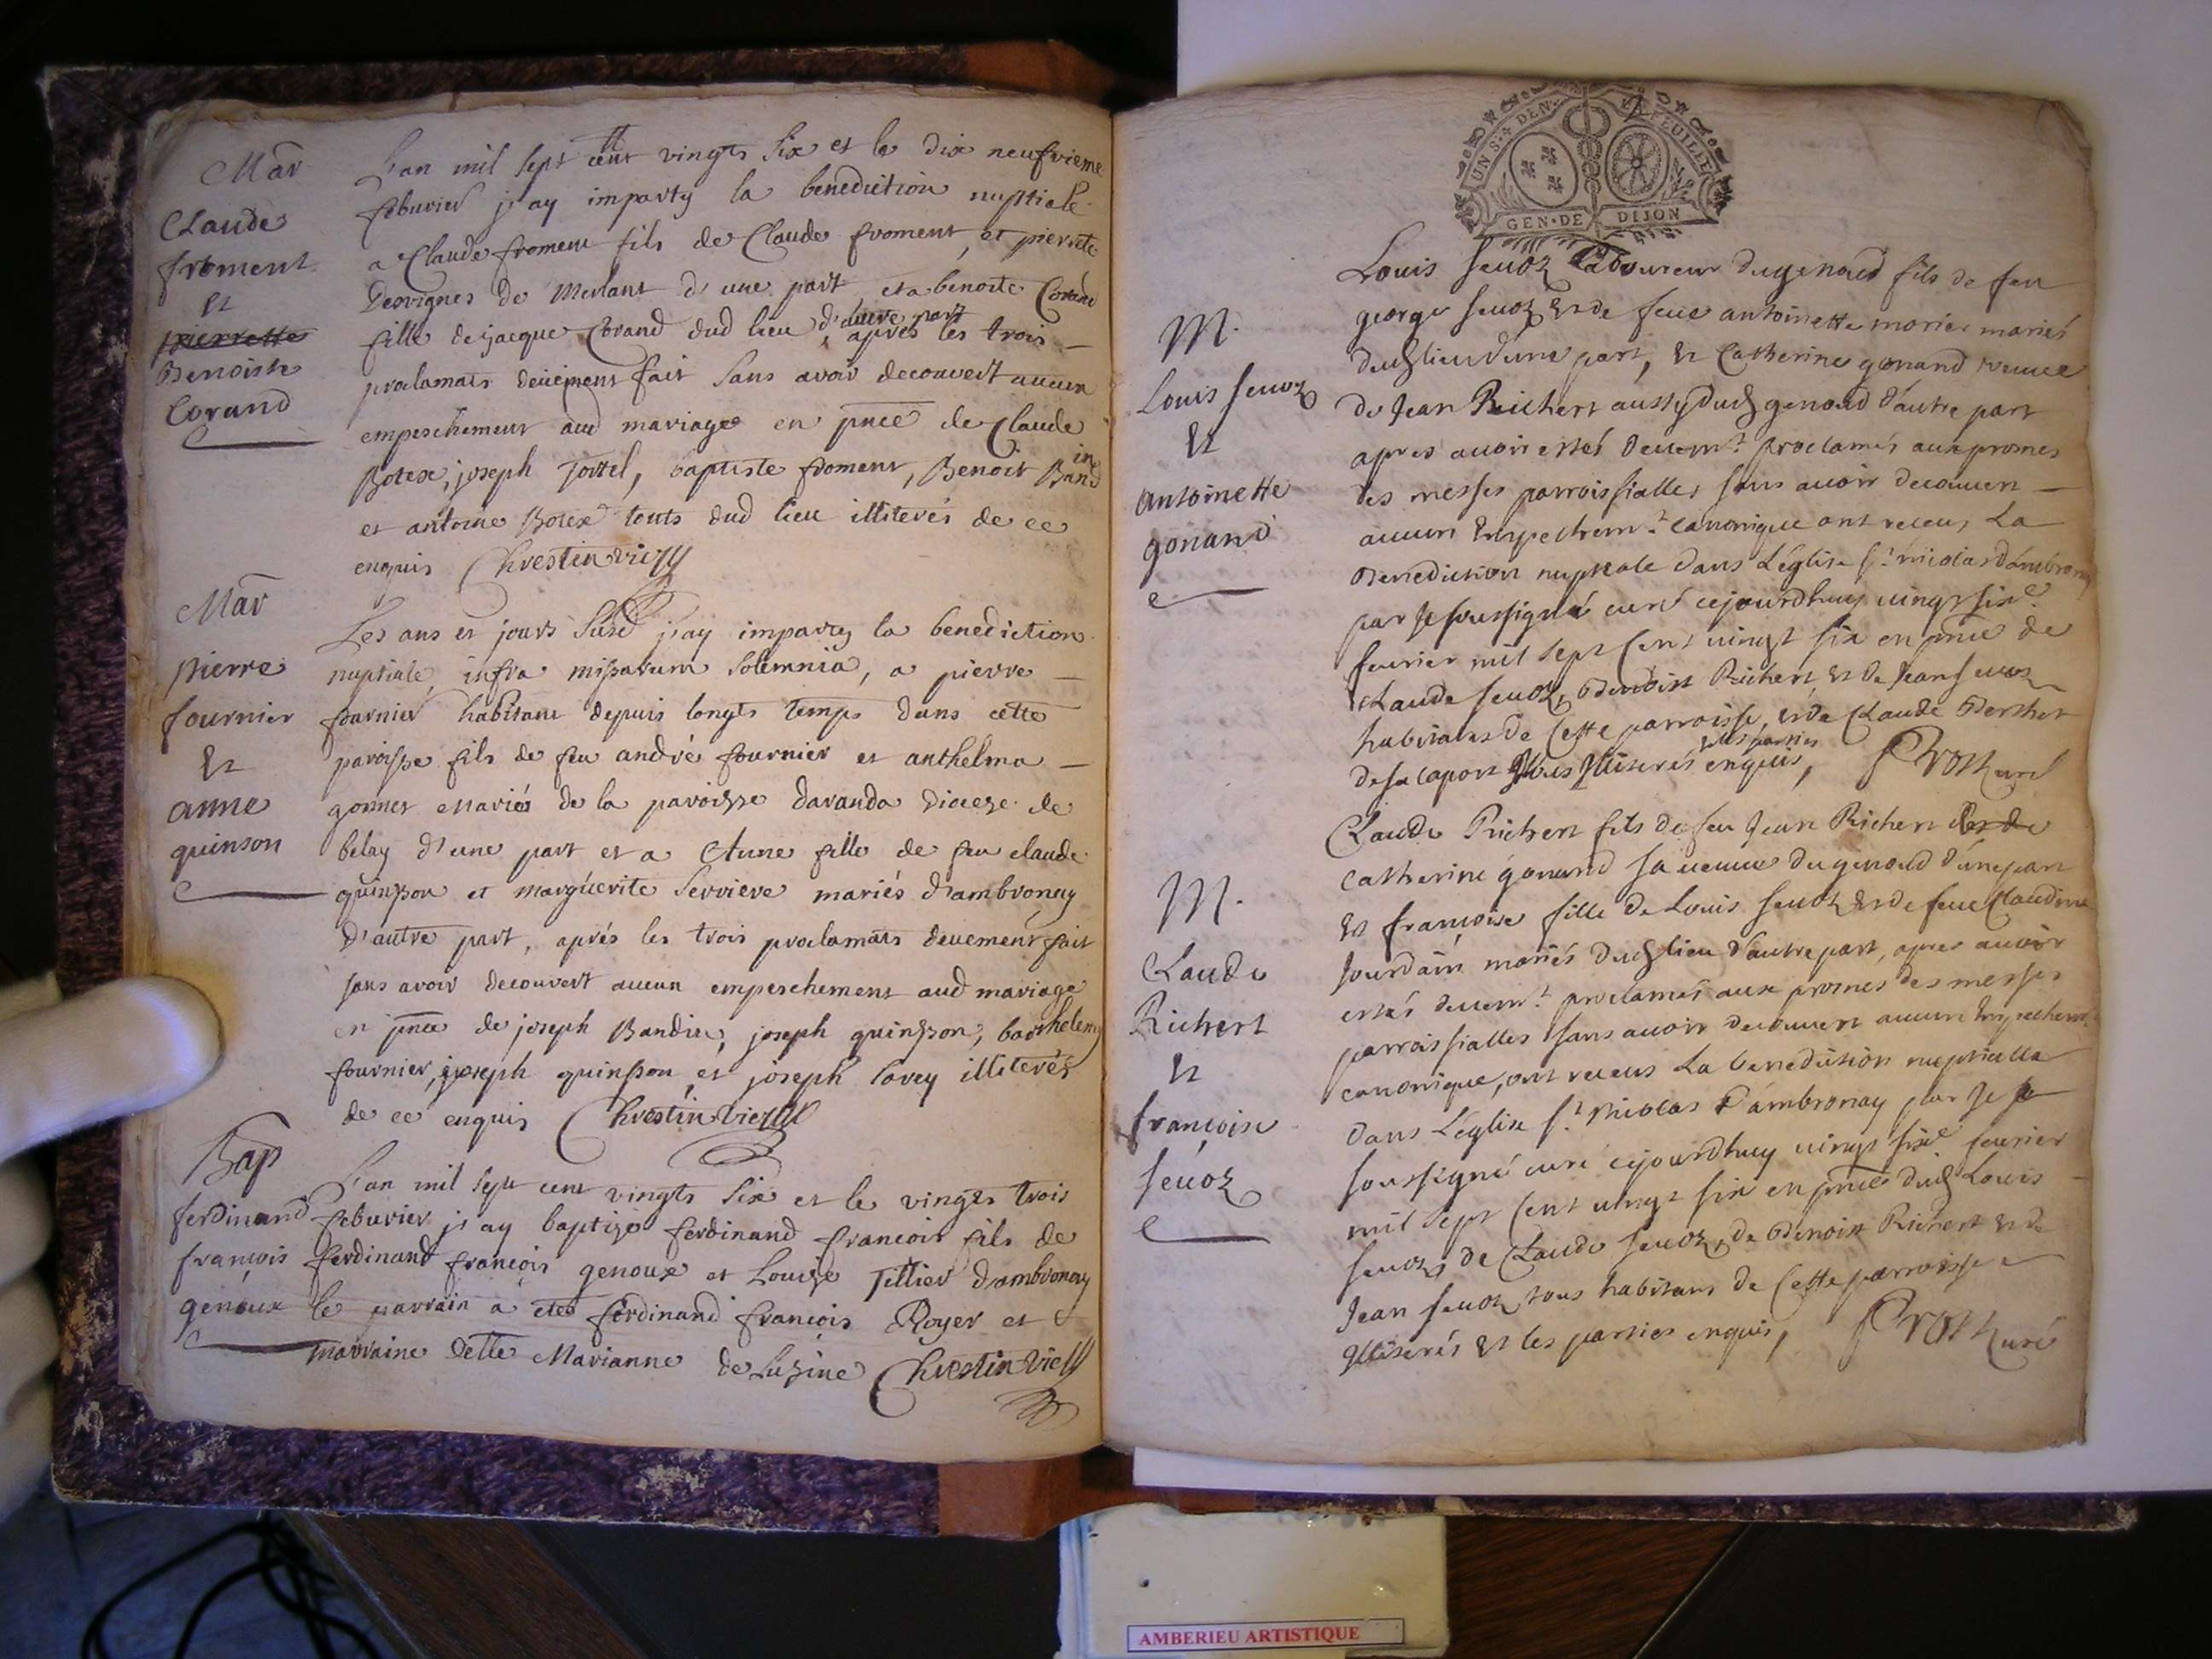 Mar
Claude
froment
Et
pierrette
Benoiste
Corand
L'an mil sept cent vingts six et le dix neufvieme
feburier j'ay imparty la benediction nuptiale
a Claude froment fils de Claude froment, et pierrette
Desvignes de Merlant d'une part, et a benoite Corand
fille de jacque Corand dud lieu, d'autre part après les trois
proclamats deüement fait sans avoir decouvert aucun
empeschement aud mariage en pnce de Claude
Botex, joseph Tortel, baptiste froment, Benoit
et antoine Botex touts dud lieu illiterés de ce
enquis Chrestin vic
Mar
pierre
fournier
Et
anne
quinson
Les ans et jours susd j'ay imparty la benediction
nuptiale infra missarum solemnia, a pierre
fournier habitant depuis longts temps dans cette
paroisse fils de feu andré fournier et anthelma
gonnet mariés de la paroisse daranda diocese de
belay d'une part et a Anne fille de feu claude
quinson et marguerite Serviere mariés d'ambronay
d'autre part, après les trois proclamats deuement fait
sans avoir decouvert aucun empeschement aud mariage
en pnce de joseph Bandin, joseph quinsson, barthelemy
fournier, joseph quinsson et joseph Cavey illiterés
de ce enquis Chrestin vic
Bap
ferdinand
françois
genoux
L'an mil sept cent vingts six et le vingts trois
feburier j'ay baptizé ferdinand francois fils de
ferdinand françois genoux et Louize Tillier d'ambronay
le parrain a eté ferdinand françois Royer et
marraine Delle Marianne de Luzine Chrestin vic
UN S. 4 DEN. LA FEUILLE
GEN. DE DIJON
M.
Louis seuoz
Et
antoinette
gonand
Louis seuoz laboureur du genoud fils de feu
george seuoz et de feue antoinette morier mariés
dud lieu d'une part, et Catherine gonand veuve
de Jean Richert aussy dud genoud d'autre part
apres auoir estés deuemt proclamés aux prosnes
des messes parroissialles sans auoir decouuert
aucun Empechemt canonique ont receus La
Benediction nuptiale dans L'eglise st nicolas d'ambronay
par Je soussigné curé cejourdhuy vingt sixe
feurier mil sept cent vingt six en pnce de
Claude seuoz, Benoist Richert et de Jean seuoz
habitans de Cette parroisse, et de Claude Berthet
enquis, et les parties
Claude Richert fils de feu Jean Richert et de
Catherine gonand sa veuve du genoud d'une part
M.
Claude
Richert
Et
françoise
seuoz
Et françoise fille de Louis seuoz et de feue Claudine
Jourdain mariés dud lieu d'autre part, apres auoir
estés deuemt proclamés aux prosnes des messes
parroissialles sans auoir decouuert aucun Empechemt
canonique, ont receus La benediction nuptialle
dans L'eglise st Nicolas d'ambronay par Je
soussigné curé cejourdhuy vingt sixe feurier
mil sept cent vingt six en pnce dud Louis
seuoz, de Claude seuoz, de Benoist Richert et de
Jean seuoz tous habitans de Cette parroisse
Illiterés et les parties enquis, curé
AMBERIEU ARTISTIQUE